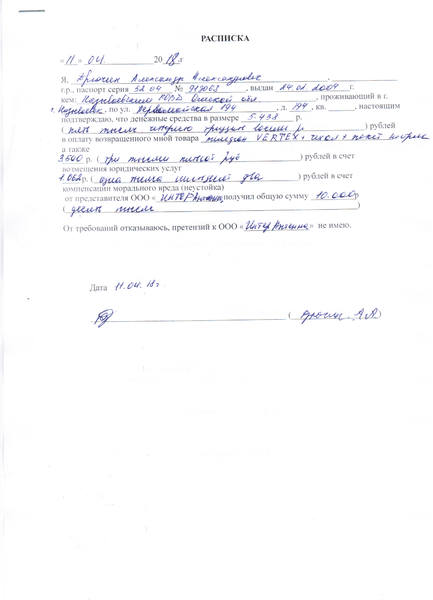 РАСПИСКА
«11» 04 2018г
Я, Александр Александрович
г.р., паспорт серия 52 04 № 313063, выдан 24.02.2004 г.
кем: Называевским РОВД Омской обл., проживающий в г.
Называевск, по ул. Первомайская 194, д. 194, кв. , настоящим
подтверждаю, что денежные средства в размере 5.438 р.
( пять тысяч четыреста тридцать восемь р. ) рублей
в оплату возвращенного мной товара телефон VERTEX + чехол +
а также
3500 р. ( три тысячи пятсот руб ) рублей в счет
возмещения юридических услуг
1.062 р. ( одна тысяча шестьдесят два ) рублей в счет
компенсации морального вреда (неустойка)
от представителя ООО « » получил общую сумму 10.000р
( десять тысяч )
От требований отказываюсь, претензий к ООО « » не имею.
Дата 11.04.18г
( А.А )